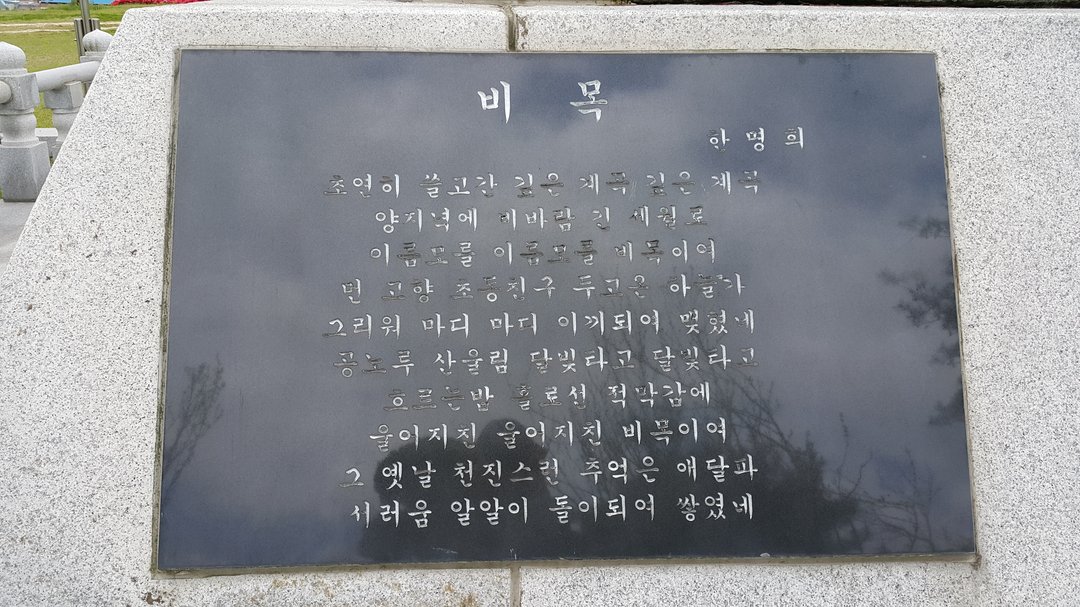 비 목
한 명 희
초연히 쓸고간 깊은 계곡 깊은 계곡
양지녘에 비바람 긴 세월로
이름모를 이름모를 비목이여
먼 고향 초동친구 두고온 하늘가
그리워 마디 마디 이끼되여 맺혔네
공노루 산울림 달빛타고 달빛타고
흐르는밤 홀로선 적막감에
울어지친 울어지친 비목이여
그 옛날 천진스런 추억은 애달파
서러움 알알이 돌이되여 쌓였네